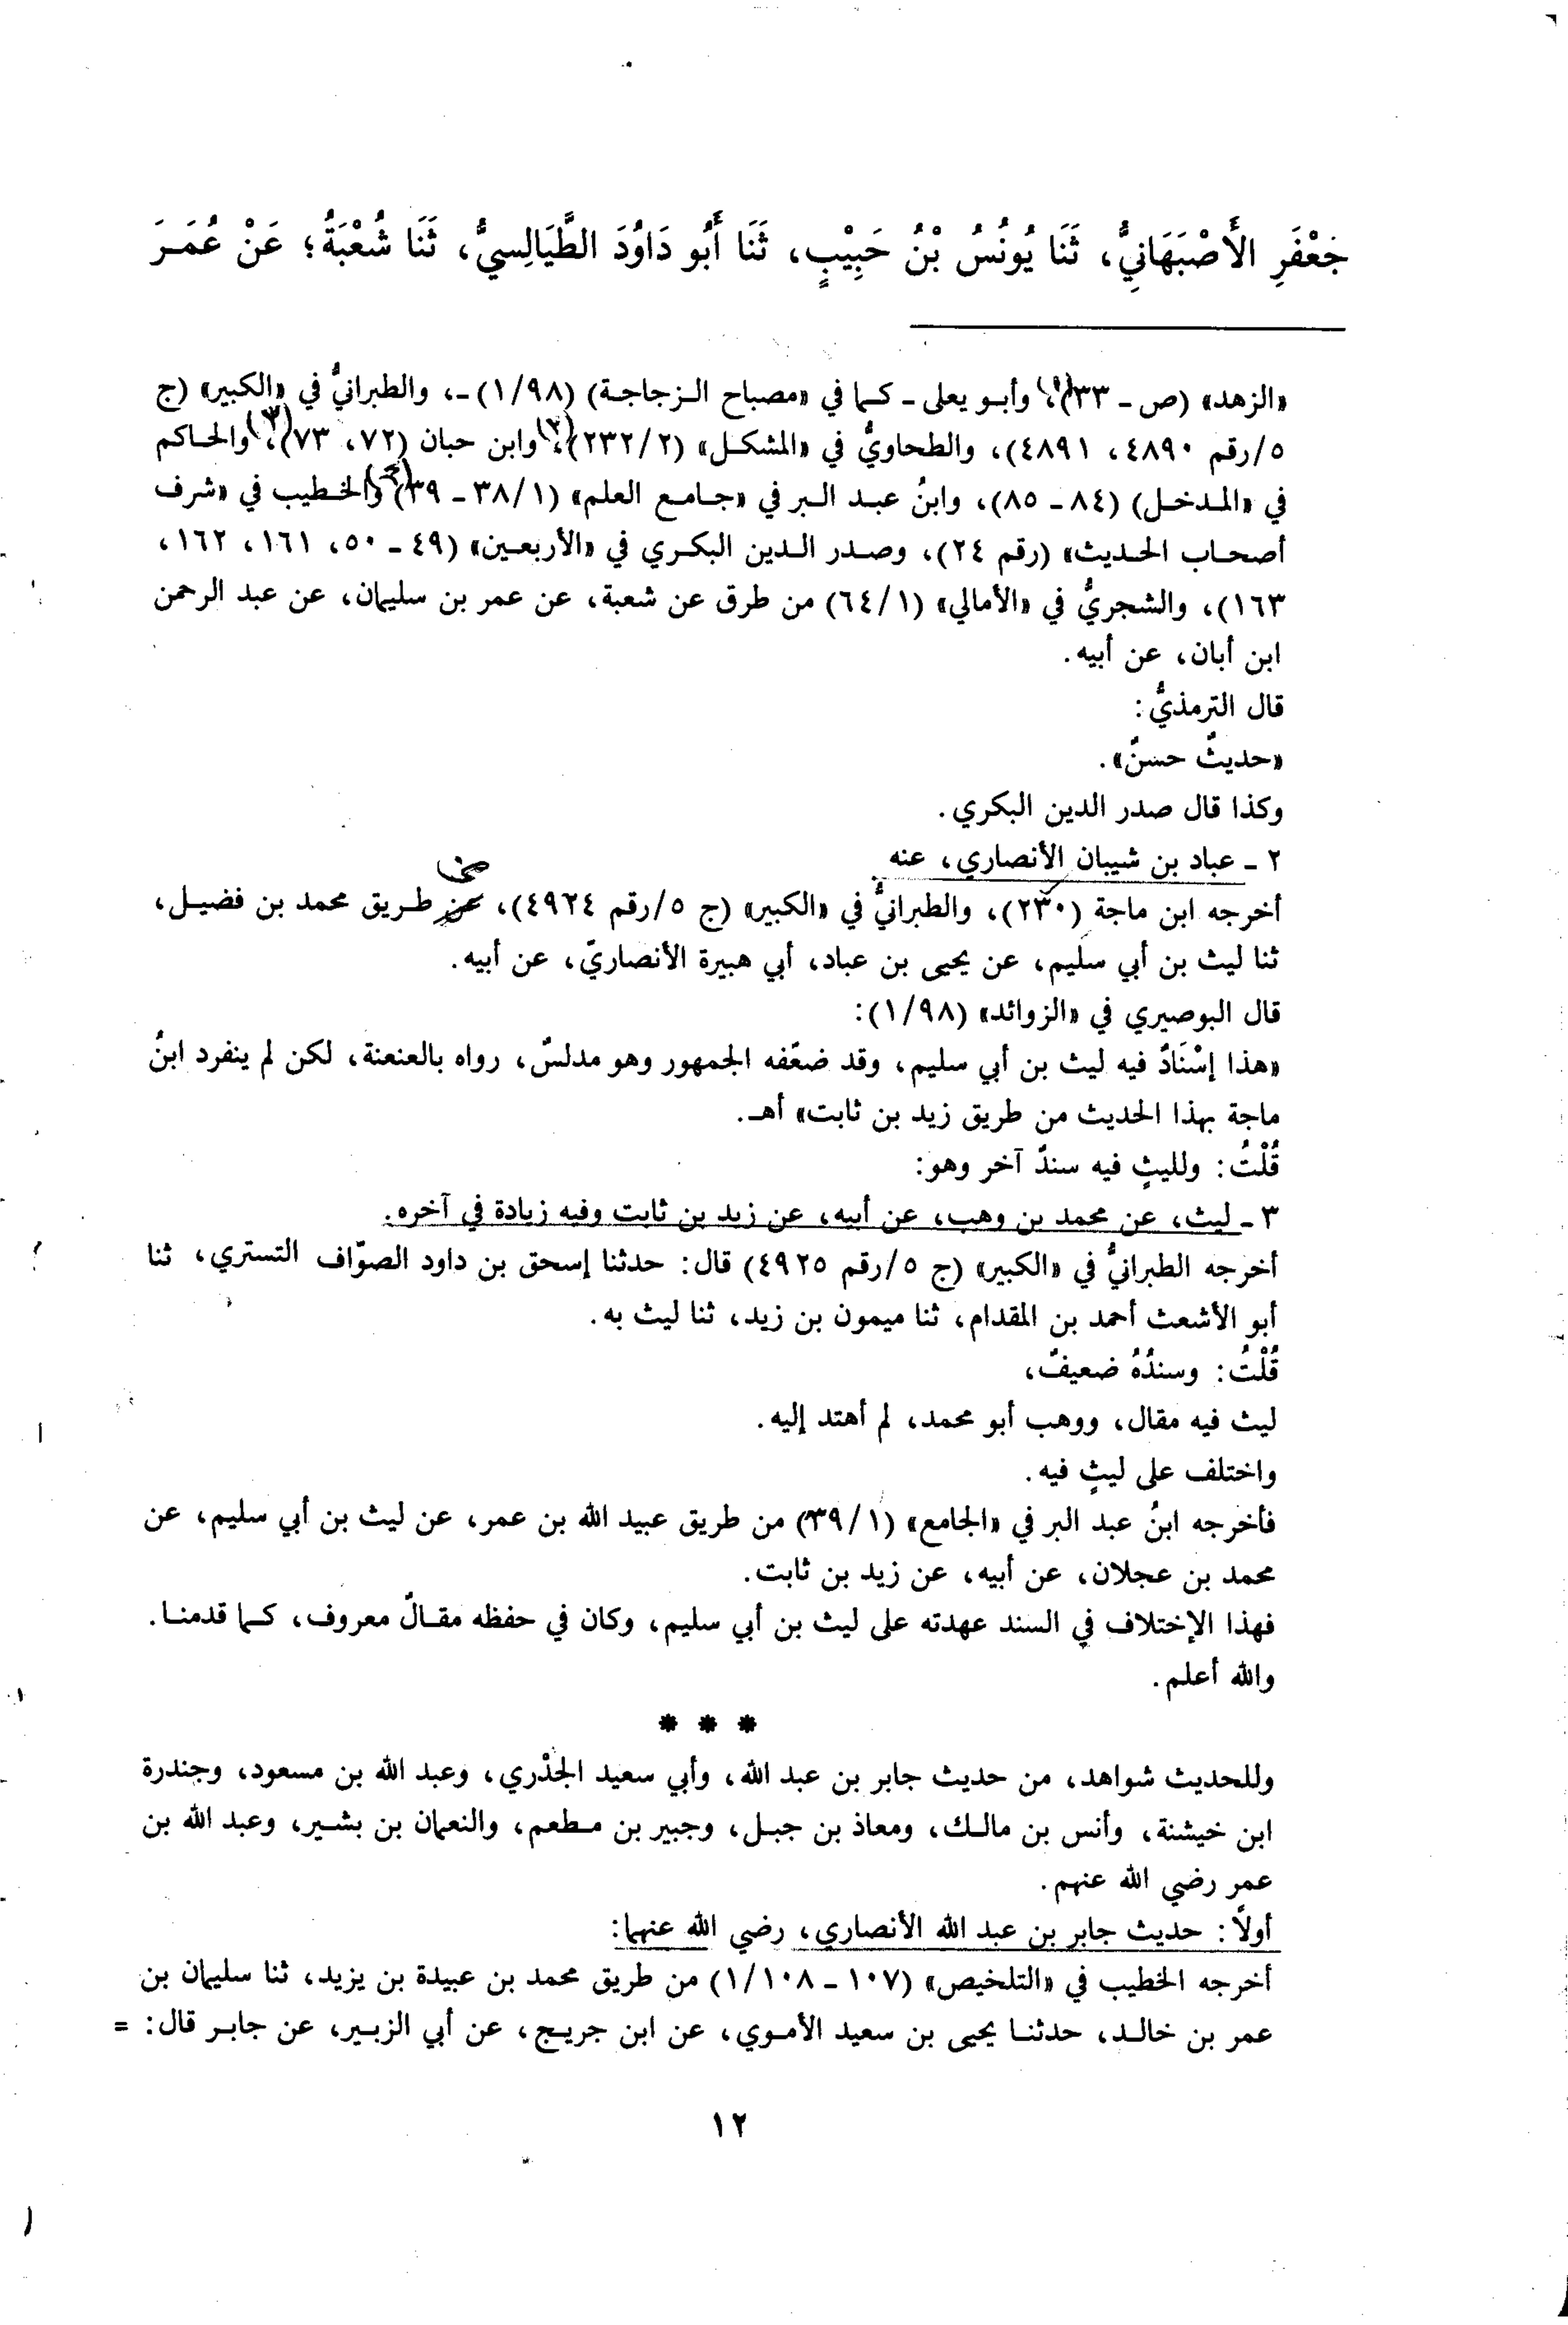 جَعْفَرِ الأَصْبَهَانِيُّ، ثَنَا يُونُسُ بْنُ حَبِيْبٍ، ثَنَا أَبُو دَاوُدَ الطَّيَالِسيُّ، ثَنَا شُعْبَةُ؛ عَنْ عُمَرَ
«الزهد» (ص - ٣٣)(١)، وأبو يعلى - كما في «مصباح الزجاجة) (١/٩٨) -، والطبرانيُّ في «الكبير» (ج
٥/رقم ٤٨٩٠، ٤٨٩١)، والطحاويُّ في «المشكل» (٢٣٢/٢)(٢)، وابن حبان (٧٢، ٧٣)(٣)، والحاكم
في «المدخل) (٨٤ - ٨٥)، وابنُ عبد البر في «جامع العلم» (٣٨/١ - ٣٩) والخطيب في «شرف
أصحاب الحديث» (رقم ٢٤)، وصدر الدين البكري في «الأربعين» (٤٩ - ٥٠، ١٦١، ١٦٢،
١٦٣)، والشجريُّ في «الأمالي» (٦٤/١) من طرق عن شعبة، عن عمر بن سليمان، عن عبد الرحمن
ابن أبان، عن أبيه.
قال الترمذيُّ:
«حديثٌ حسنٌ».
وكذا قال صدر الدين البكري.
٢ - عباد بن شيبان الأنصاري، عنه
أخرجه ابن ماجة (٢٣٠)، والطبرانيُّ في «الكبير» (ج ٥/رقم ٤٩٢٤)، عن طريق محمد بن فضيل،
ثنا ليث بن أبي سليم، عن يحيى بن عباد، أبي هبيرة الأنصاريّ، عن أبيه.
قال البوصيري في «الزوائد» (١/٩٨):
«هذا إسْنَادٌ فيه ليث بن أبي سليم، وقد ضعّفه الجمهور وهو مدلسٌ، رواه بالعنعنة، لكن لم ينفرد ابنُ
ماجة بهذا الحديث من طريق زيد بن ثابت» أهـ.
قُلْتُ: ولليثٍ فيه سندٌ آخر وهو:
٣ - ليث، عن محمد بن وهب، عن أبيه، عن زيد بن ثابت وفيه زيادة في آخره.
أخرجه الطبرانيُّ في «الكبير» (ج ٥/رقم ٤٩٢٥) قال: حدثنا إسحق بن داود الصوّاف التستري، ثنا
أبو الأشعث أحمد بن المقدام، ثنا ميمون بن زيد، ثنا ليث به.
قُلْتُ: وسندُهُ ضعيفٌ،
ليث فيه مقال، ووهب أبو محمد، لم أهتد إليه.
واختلف على ليثٍ فيه.
فأخرجه ابنُ عبد البر في «الجامع» (٣٩/١) من طريق عبيد الله بن عمر، عن ليث بن أبي سليم، عن
محمد بن عجلان، عن أبيه، عن زيد بن ثابت.
فهذا الإختلاف في السند عهدته على ليث بن أبي سليم، وكان في حفظه مقالٌ معروف، كما قدمنا.
والله أعلم.
* * *
وللحديث شواهد، من حديث جابر بن عبد الله، وأبي سعيد الجذْري، وعبد الله بن مسعود، وجندرة
ابن خيشنة، وأنس بن مالك، ومعاذ بن جبل، وجبير بن مطعم، والنعمان بن بشير، وعبد الله بن
عمر رضي الله عنهم.
أولاً: حديث جابر بن عبد الله الأنصاري، رضي الله عنهما:
أخرجه الخطيب في «التلخيص» (١٠٧ - ١/١٠٨) من طريق محمد بن عبيدة بن يزيد، ثنا سليمان بن
عمر بن خالد، حدثنا يحيى بن سعيد الأموي، عن ابن جريج، عن أبي الزبير، عن جابر قال: =
١٢